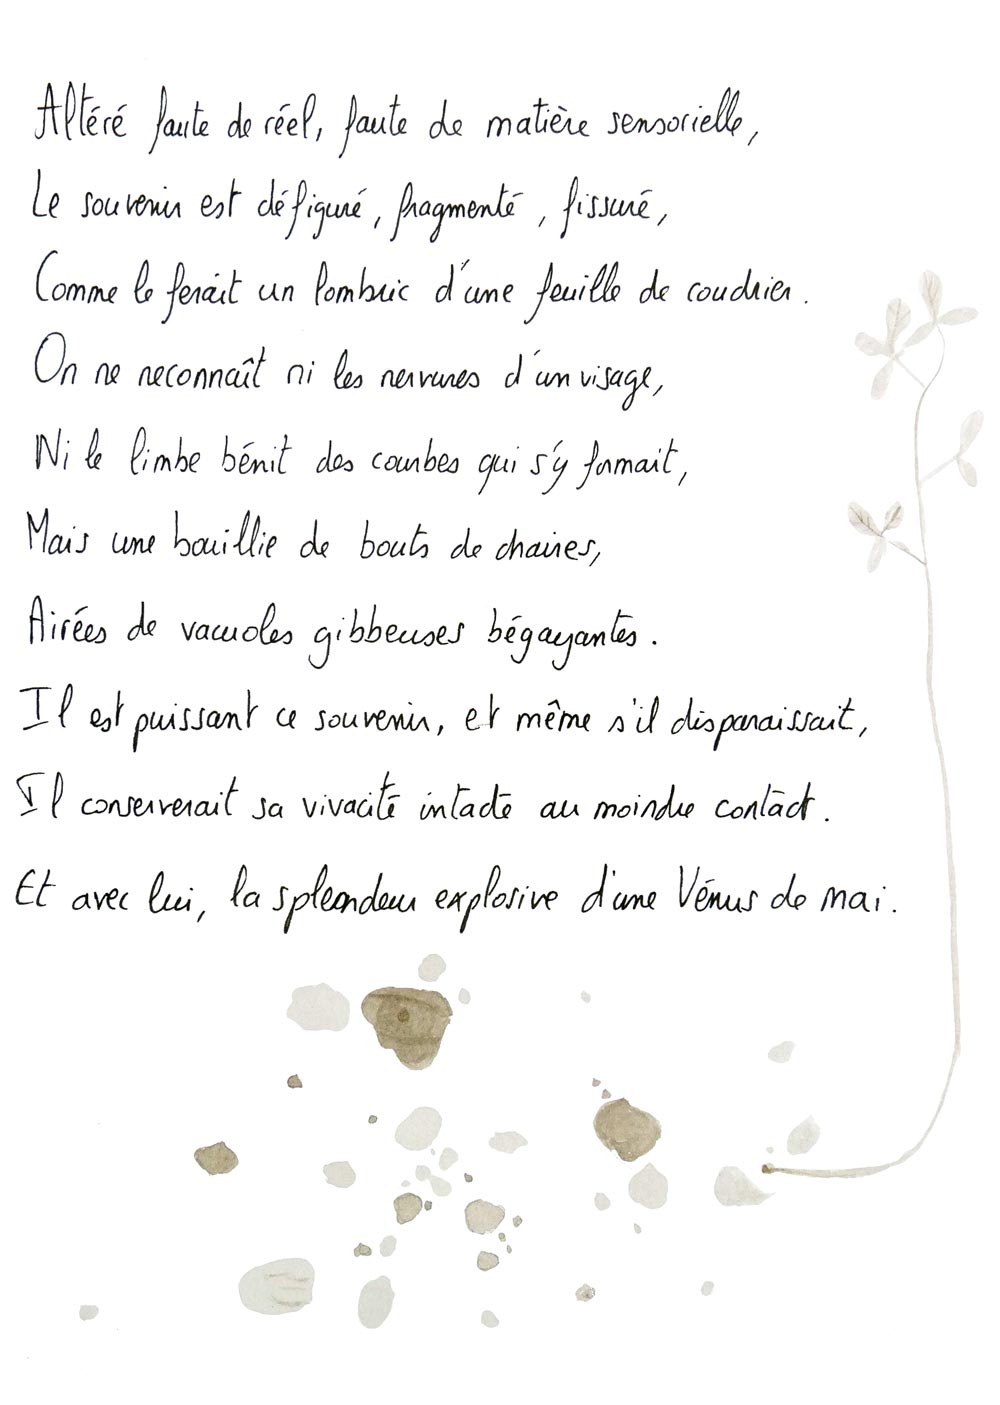 Altéré faute de réel, faute de matière sensorielle,
Le souvenir est défiguré, fragmenté, fissuré,
Comme le ferait un lombric d'une feuille de coudrier.
On ne reconnaît ni les nervures d'un visage,
Ni le limbe bénit des courbes qui s'y formait,
Mais une bouillie de bouts de chaires,
Airées de vacuoles gibbeuses bégayantes.
Il est puissant ce souvenir, et même s'il disparaissait,
Il conserverait sa vivacité intacte au moindre contact.
Et avec lui, la splendeur explosive d'une Vénus de mai.